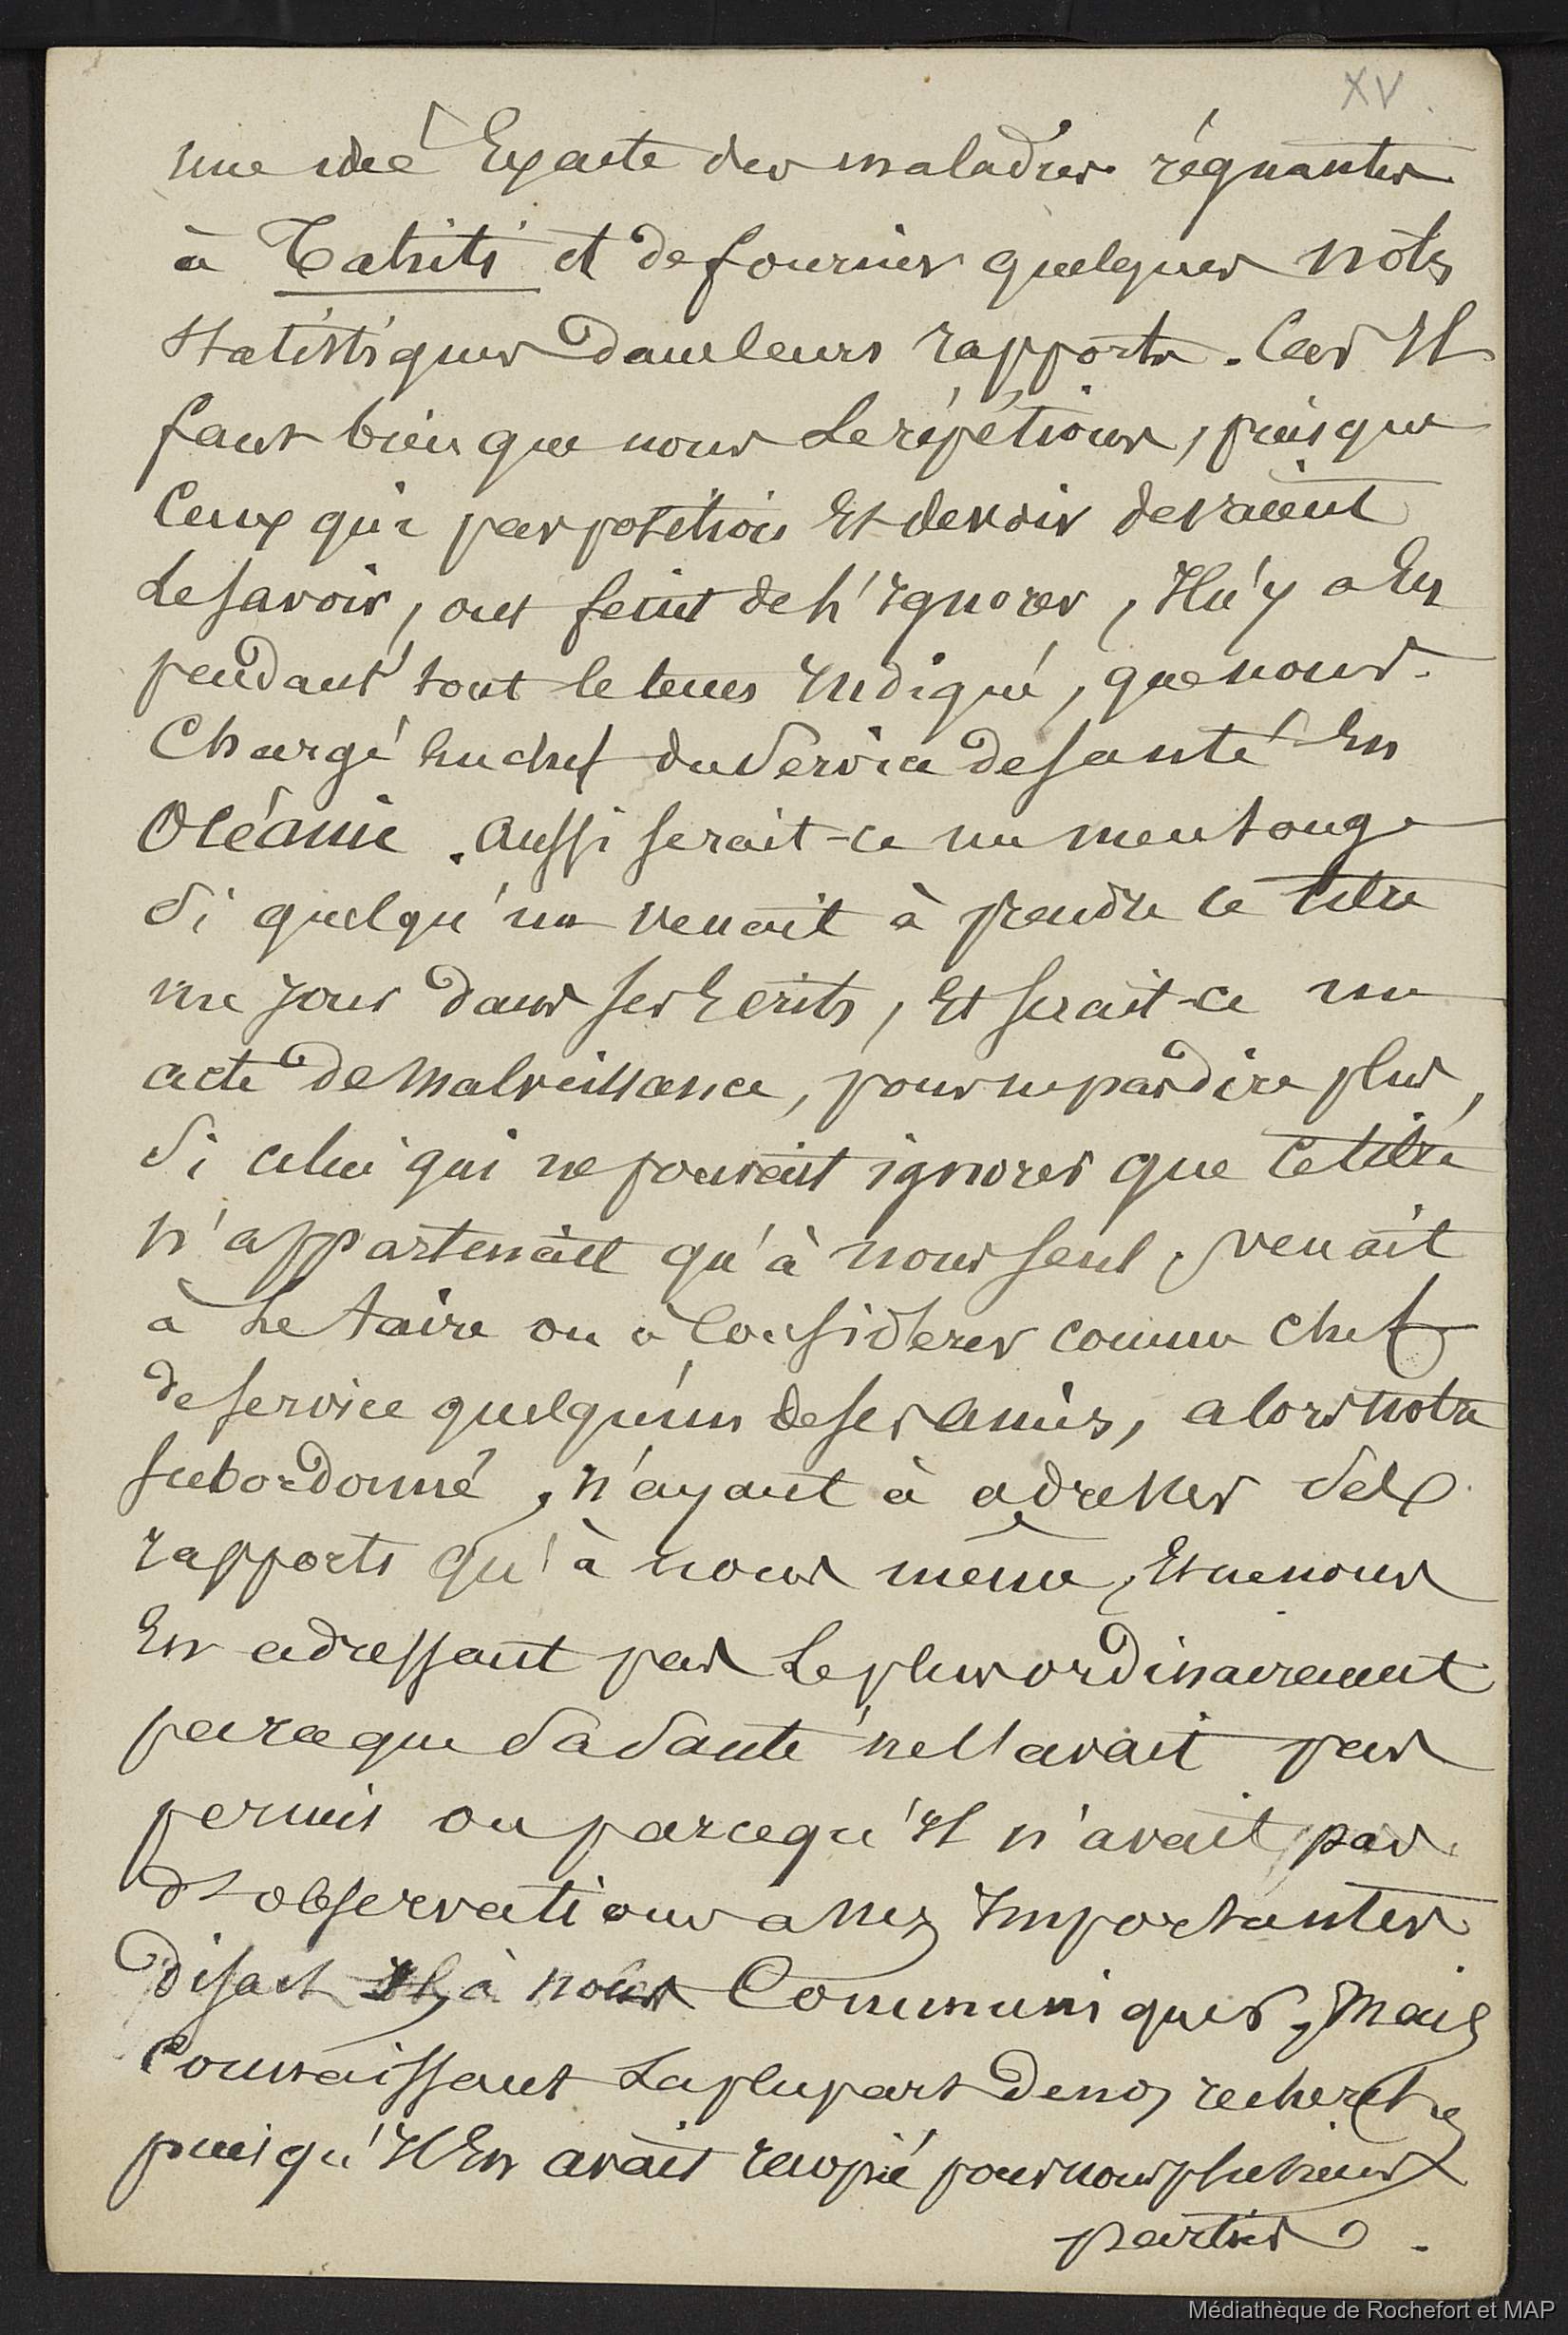 XV.
une idée Exacte des maladies régnantes
à Tahiti et de fournir quelques notes
statistiques dans leurs rapports. Car Il
faut bien que nous Le répétions, puisque
Ceux qui par position Et devoir devraient
Le savoir, ont feint de l'Ignorer, Il n'y a Eu
pendant tout le tems Indiqué, que nous
Chargé En chef du Service de santé En
Océanie. aussi serait-ce un mensonge
Si quelqu'un venait à prendre ce titre
un jour dans ses Ecrits, Et serait-ce un
acte de malveillance, pour ne pas dire plus,
Si celui qui ne pouvait ignorer que Ce titre
n'appartenait qu'à nous seul, venait
à Le taire ou à Considerer comme chef
de service quelqu'un de ses amis, alors notre
subordonné, n'ayant à adresser de
rapports qu'à nous même, Et ne nous
En adressant pas Le plus ordinairement
parceque Sa Santé ne l'avait pas
permis ou parcequ'Il n'avait pas
d'observations assez Importantes
disait Il, à nous Communiquer, Mais
Connaissant La plupart de nos recherches
puisqu'Il En avait recopié pour nous plusieurs
parties.
Médiathèque de Rochefort et MAP